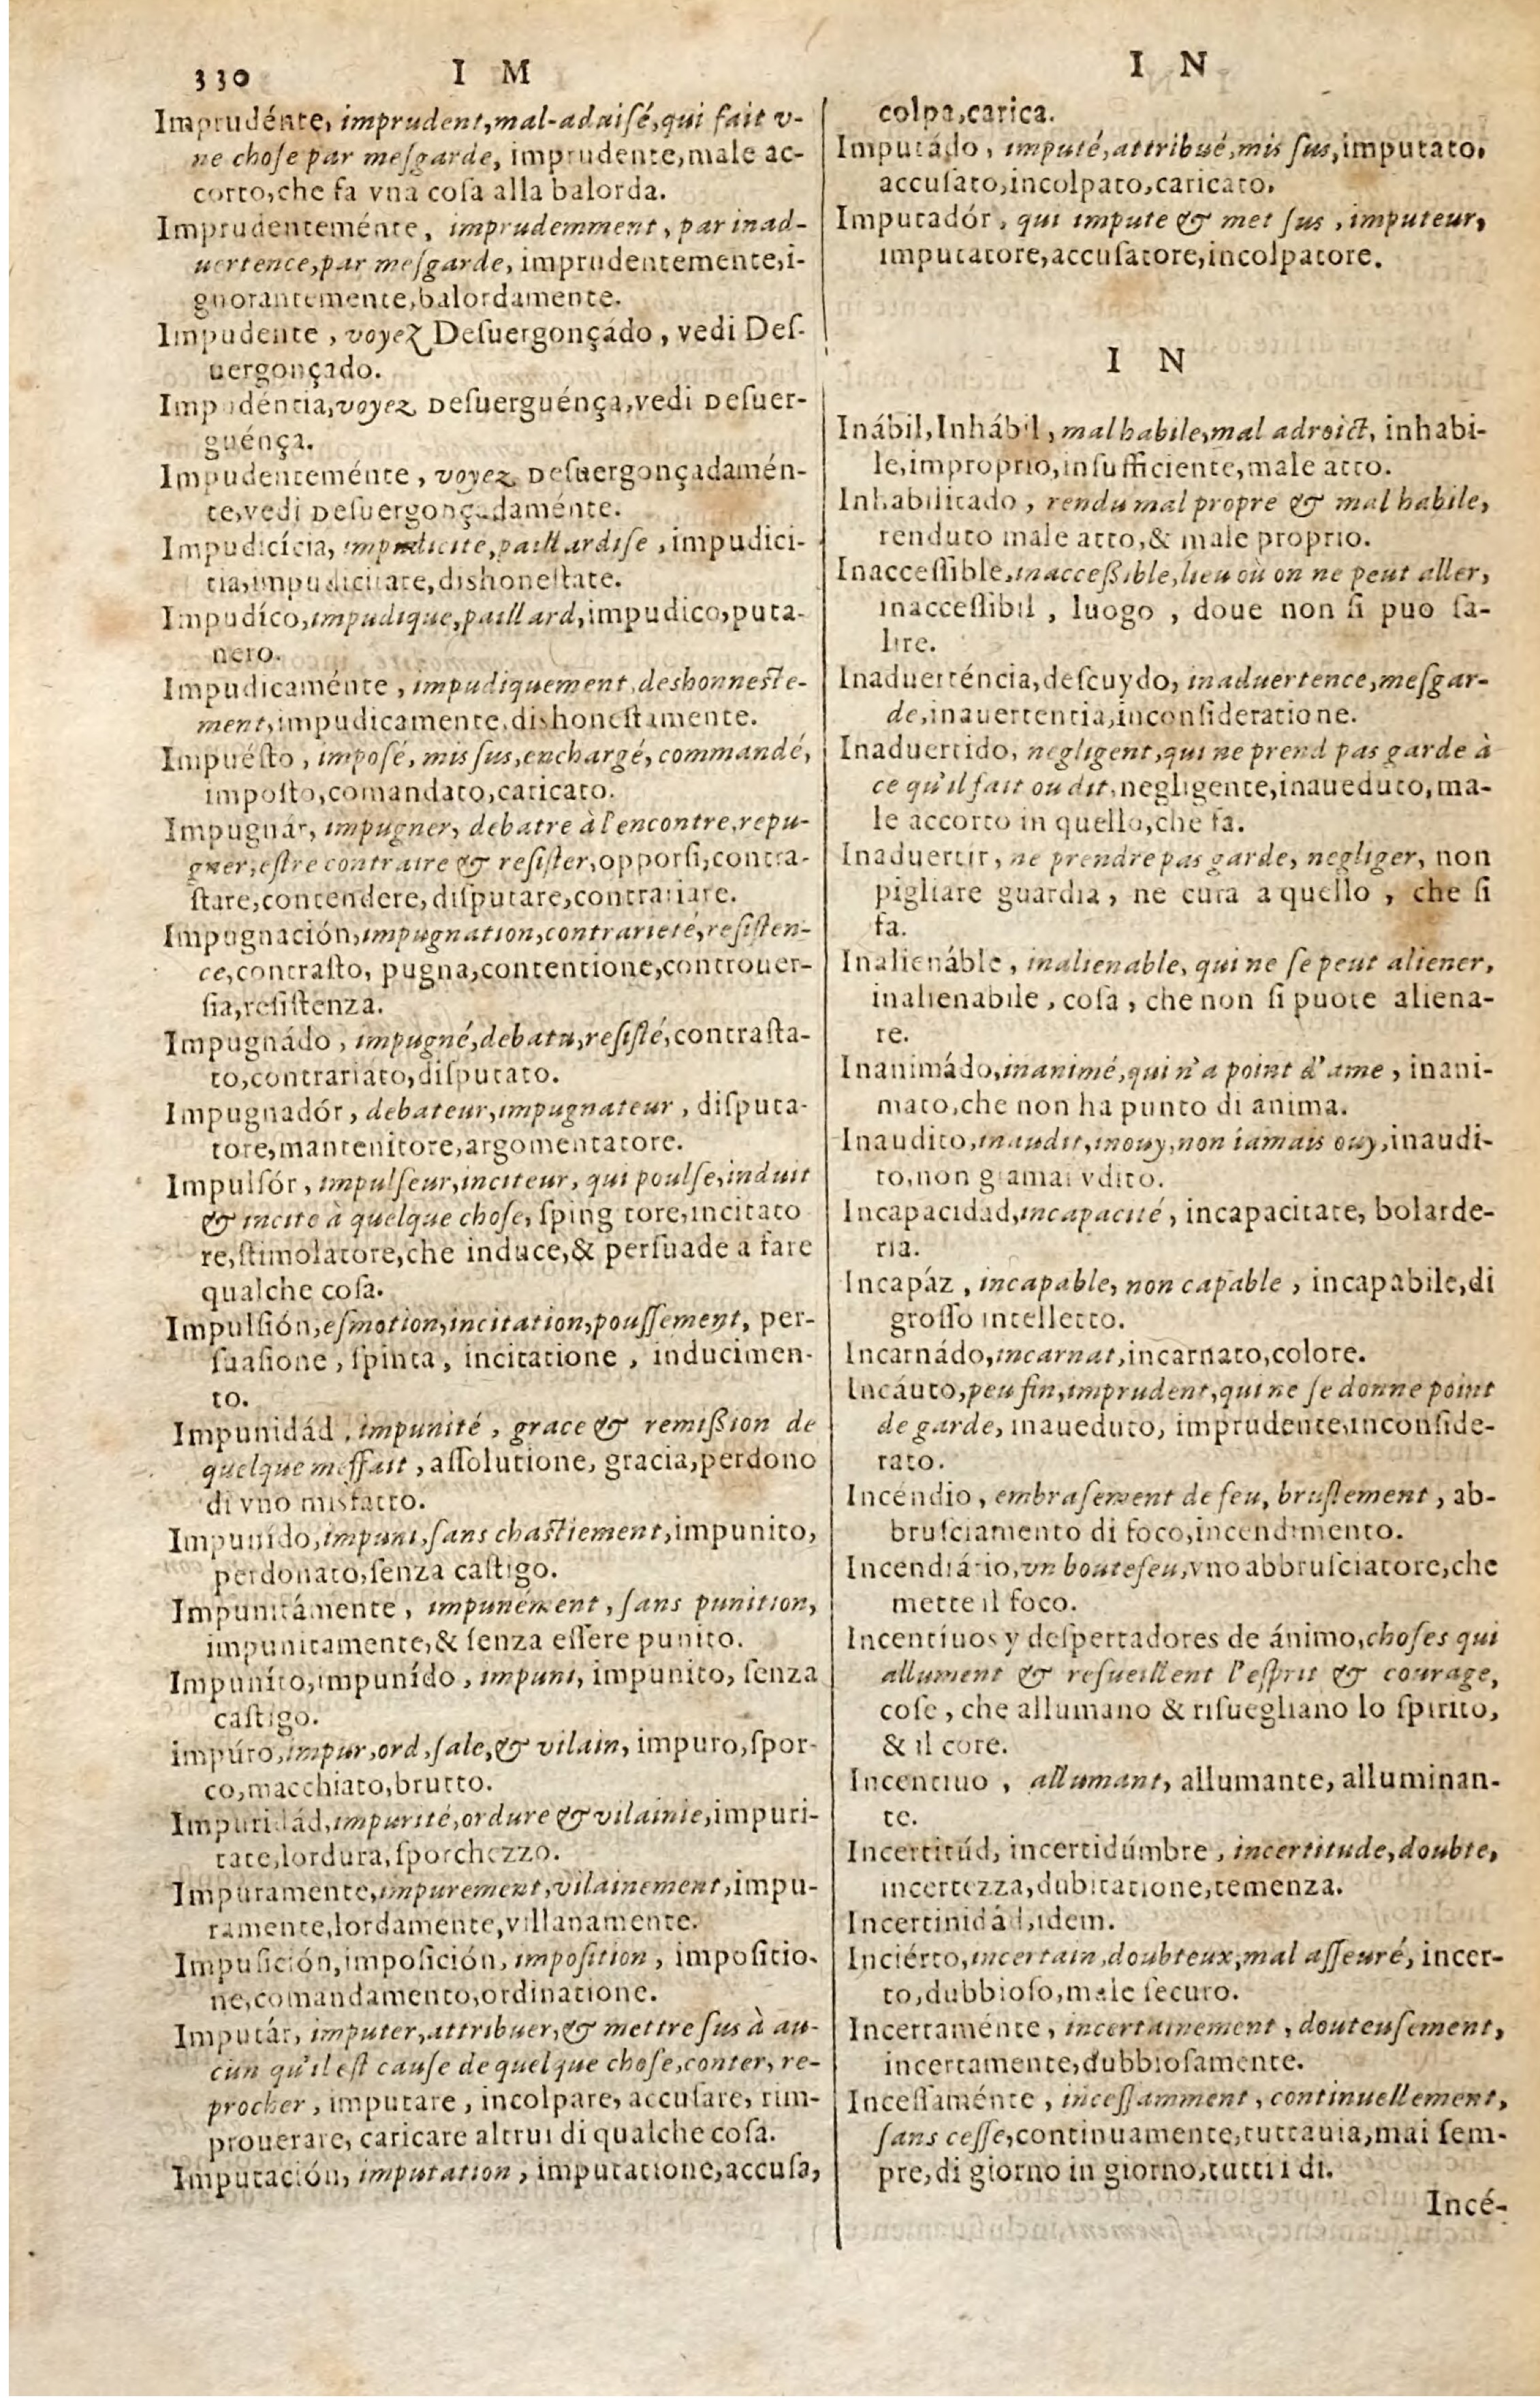 330 I M
Imprudénte, imprudent,mal-aduisé,qui fait v-
ne chose par mesgarde, imprudente,male ac-
corto,che fa vna cosa alla balorda.
Imprudenteménte, imprudemment, par inad-
uertence,par mesgarde, imprudentemente,i-
gnorantemente,balordamente.
Impudente, voyez Desuergonçádo, vedi Des-
uergonçado.
Impudéntia,voyez Desuerguénça,vedi Desuer-
guénça.
Impudenteménte, voyez Desuergonçadamén-
te,vedi Desuergonçadaménte.
Impudicícia, impudicité,paillardise, impudici-
tia,impudicitate,dishonestate.
Impudíco,impudique,paillard,impudico,puta-
nero.
Impudicaménte, impudiquement,deshonneste-
ment,impudicamente,dishonestamente.
Impuésto, imposé, mis sus,enchargé, commandé,
imposto,comandato,caricato.
Impugnár, impugner, debatre à l'encontre,repu-
gner,estre contraire & resister,opporsi,contra-
stare,contendere,disputare,contrariare.
Impugnación,impugnation,contrarieté,resisten-
ce,contrasto, pugna,contentione,controuer-
sia,resistenza.
Impugnádo, impugné,debatu,resisté,contrasta-
to,contrariato,disputato.
Impugnadór, debateur,impugnateur, disputa-
tore,mantenitore,argomentatore.
Impulsór, impulseur,inciteur, qui poulse,induit
& incite à quelque chose, sping tore,incitato
re,stimolatore,che induce,& persuade a fare
qualche cosa.
Impulsión,esmotion,incitation,poussement, per-
suasione, spinta, incitatione, inducimen-
to.
Impunidád, impunité, grace & remission de
quelque meffait, assolutione, gracia,perdono
di vno misfatto.
Impunído,impuni,sans chastiement,impunito,
perdonato,senza castigo.
Impunitámente, impunément, sans punition,
impunitamente,& senza essere punito.
Impuníto,impunído, impuni, impunito, senza
castigo.
impúro,impur,ord,sale,& vilain, impuro,spor-
co,macchiato,brutto.
Impuridád,impurité,ordure & vilainie,impuri-
tate,lordura,sporchezzo.
Impuramente,impurement,vilainement,impu-
ramente,lordamente,villanamente.
Impusición,imposición,imposition, impositio-
ne,comandamento,ordinatione.
Imputár, imputer,attribuer,& mettre sus à au-
cun qu'il est cause de quelque chose,conter, re-
procher, imputare, incolpare, accusare, rim-
prouerare, caricare altrui di qualche cosa.
Imputación, imputation, imputatione,accusa,
I N
colpa,carica.
Imputádo, imputé,attribué,mis sus,imputato,
accusato,incolpato,caricato.
Imputadór, qui impute & met sus, imputeur,
imputatore,accusatore,incolpatore.
I N
Inábil,Inhábil, malhabile,mal adroict, inhabi-
le,improprio,insufficiente,male atto.
Inhabilitado, rendu mal propre & mal habile,
renduto male atto,& male proprio.
Inaccessible,inaccessible,lieu où on ne peut aller,
inaccessibil, luogo, doue non si puo sa-
lire.
Inaduerténcia,descuydo, inaduertence,mesgar-
de,inauertentia,inconsideratione.
Inaduertido, negligent,qui ne prend pas garde à
ce qu'il fait ou dit,negligente,inaueduto,ma-
le accorto in quello,che fa.
Inaduertir, ne prendre pas garde, negliger, non
pigliare guardia, ne cura a quello, che si
fa.
Inalienáble, inalienable, qui ne se peut aliener,
inalienabile, cosa, che non si puote aliena-
re.
Inanimádo,inanimé,qui n'a point d'ame, inani-
mato,che non ha punto di anima.
Inaudito,inaudit,inouy,non iamais ouy,inaudi-
to,non giamai vdito.
Incapacidad,incapacité, incapacitate, bolarde-
ria.
Incapáz, incapable, non capable, incapabile,di
grosso intelletto.
Incarnádo,incarnat,incarnato,colore.
Incáuto,peu fin,imprudent,qui ne se donne point
de garde, inaueduto, imprudente,inconside-
rato.
Incéndio, embrasement de feu, bruslement, ab-
brusciamento di foco,incendimento.
Incendiário,vn boutefeu,vno abbrusciatore,che
mette il foco.
Incentíuos y despertadores de ánimo,choses qui
allument & resueillent l'esprit & courage,
cose, che allumano & risuegliano lo spirito,
& il core.
Incentiuo, allumant, allumante, alluminan-
te.
Incertitúd, incertidúmbre, incertitude,doubte,
incertezza,dubitatione,temenza.
Incertinidád,idem.
Inciérto,incertain,doubteux,mal asseuré, incer-
to,dubbioso,male securo.
Incertaménte, incertainement, douteusement,
incertamente,dubbiosamente.
Incessaménte, incessamment, continuellement,
sans cesse,continuamente,tuttauia,mai sem-
pre,di giorno in giorno,tutti i di.
Incé-